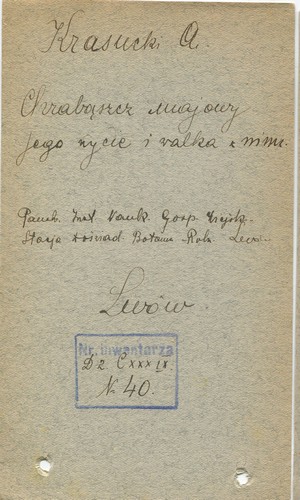 Krasucki A.
Chrabąszcz majowy
Jego życie i walka z nimi.
Państ. Inst. Nauk. Gosp. Wiejsk.
Stacja Doświad. Botan. Roln. Lwów
Lwów.
Nr. inwentarza
Dz. CXXXIV.
N 40.